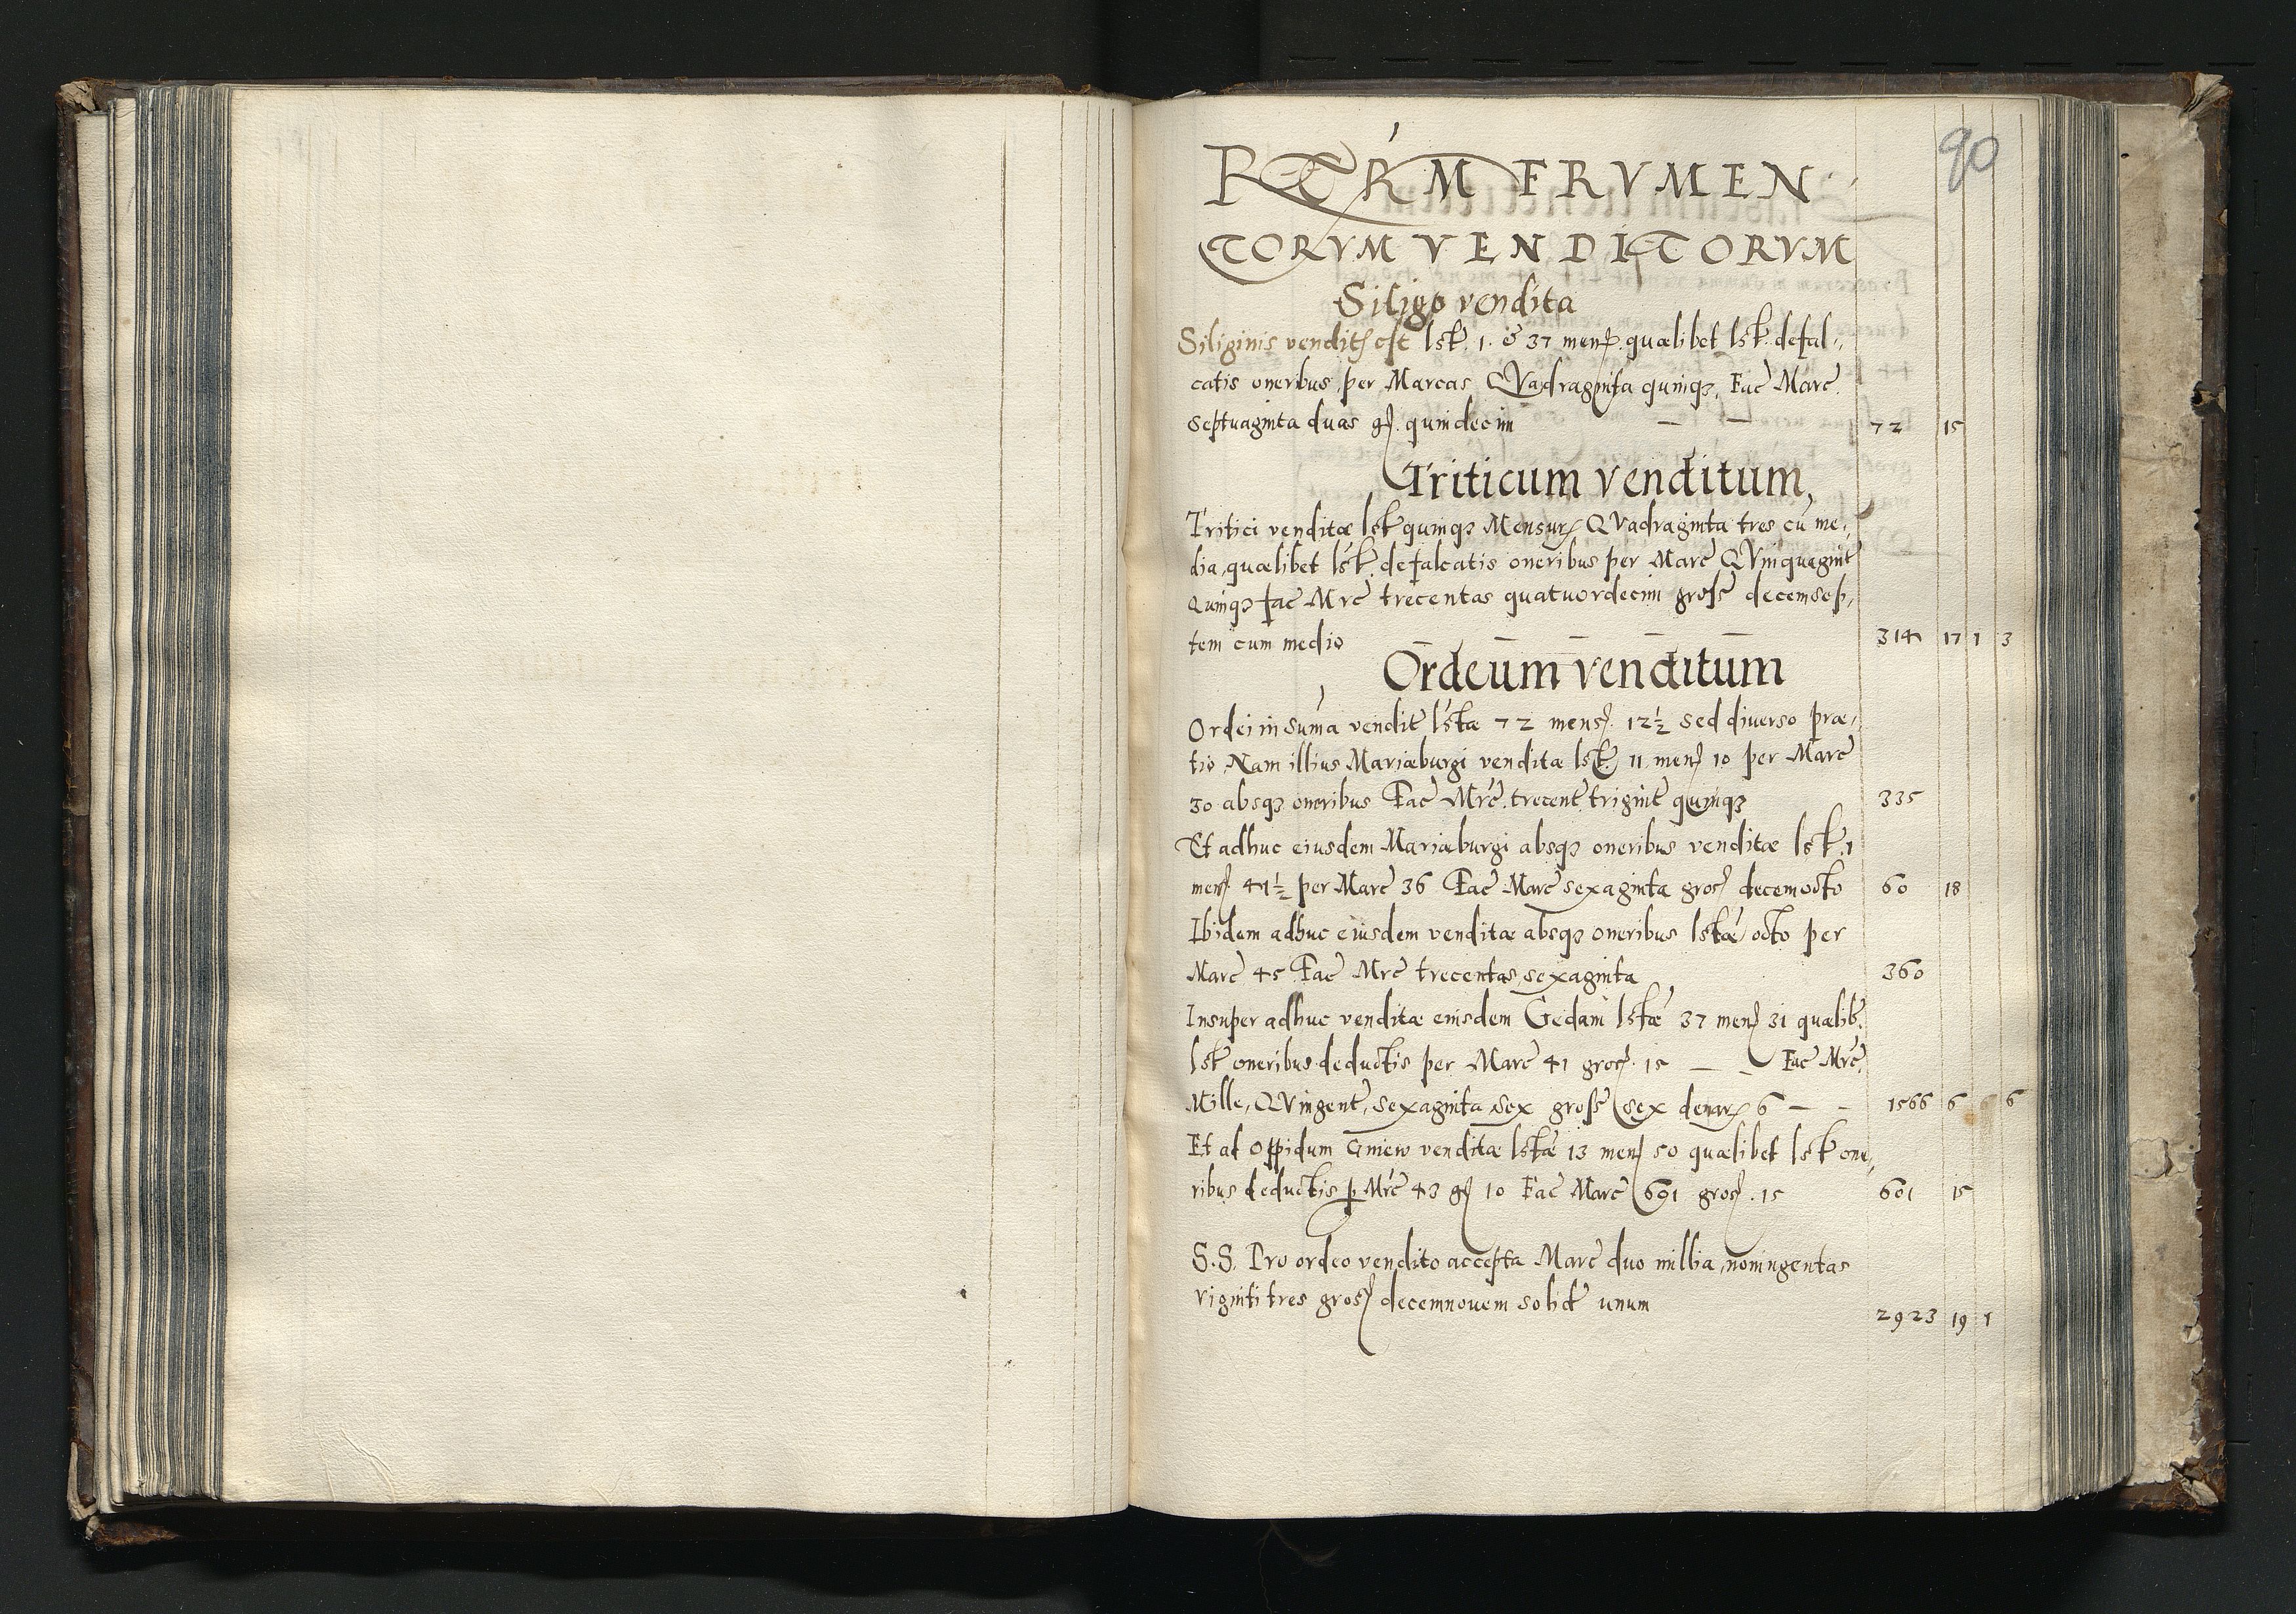 90
RTRM FRVMEN
TORVM VENDITORVM
Siligo vendita
Siliginis vendit est lst. 1. & 37 mens. quælibet lst. defal-
catis oneribus per Marcas QVadraginta quinq3, Fac Marc.
septuaginta duas gs. quindecim — — 72 15
Triticum venditum,
Tritici venditæ lst quinq3 Mensur QVadraginta tres cū me-
dia, quælibet lst. defalcatis oneribus per Marc QVinquagint
Quinq3 fac Mrc trecentas quatuordecim gross decemsep,
tem cum medio — — — — — 314 17 1 3
Ordeum venditum
Ordei in suma vendit lstæ 72 mens. 12½ sed diuerso præ,
tio, Nam illius Mariæburgi venditæ lst. 11 mens 10 per Marc
30 absq3 oneribus Fac Mrc. trecent trigint quinq3 335
Et adhuc eiusdem Mariæburgi absq3 oneribus venditæ lst. 1
mens. 41½ per Marc 36 Fac Marc sexaginta gros decemocto 60 18
Ibidem adhuc eiusdem venditæ absq3 oneribus lstæ octo per
Marc 45 Fac Mrc trecentas sexaginta 360
Insuper adhuc venditæ eiusdem Gedani lstæ 37 mens 31 quælib.
lst oneribus deductis per Marc 41 gros. 15 — — Fac Mrc,
Mille, QVingent, sexaginta sex gross sex denar 6 — — 1566 6 6
Et ad Oppidum Gniew venditæ lstæ 13 mens 50 quælibet lst one,
ribus deductis p Mrc 43 gs 10 Fac Marc 601 gros. 15 601 15
S.S. Pro ordeo vendito accepta Marc duo millia, noningentas
viginti tres gros decemnouem solid unum
2923 19 1